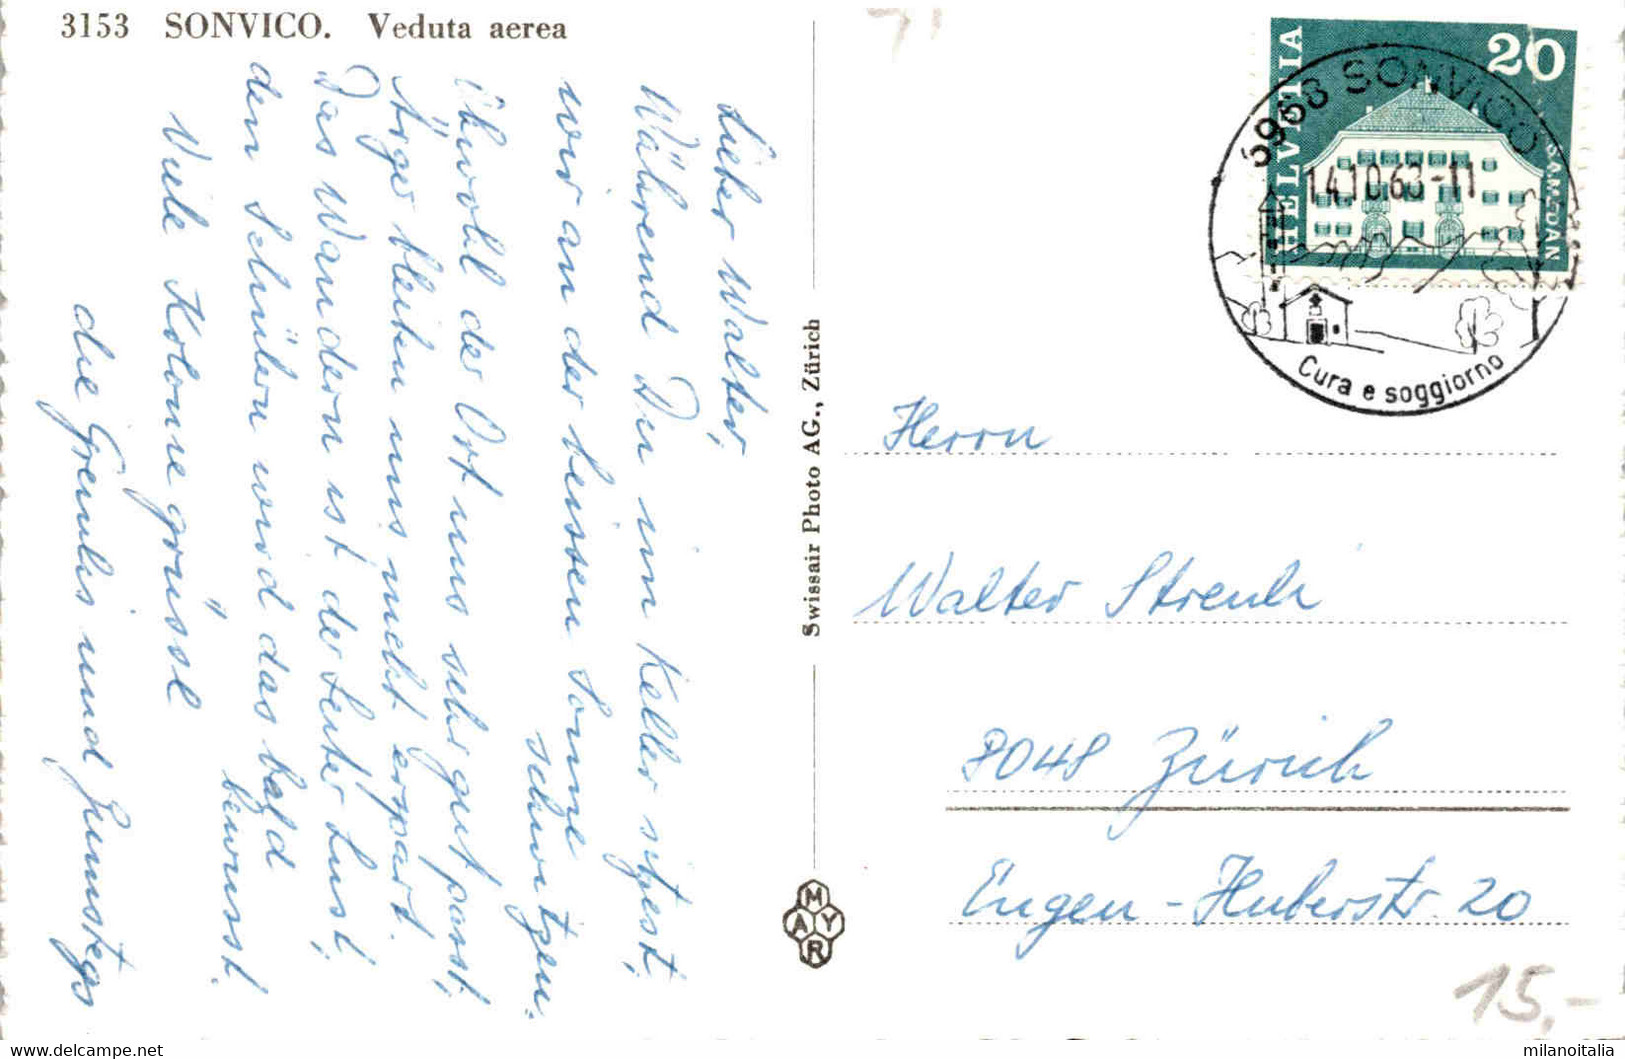 3153 SONVICO. Veduta aerea
Lieber Walter,
Während Du im Keller sitzest,
wir an der heissen Sonne
schwitzen.
Obwohl der Ort uns sehr gut passt,
Ärger bleiben uns nicht erspart.
Das Wandern ist der Leiter Lust,
den Schülern wird das bald
bewusst.
Viele Koloniegrüsse
die Greulis und
Swissair Photo AG., Zürich
MAYR
HELVETIA
20
SAMEDAN
6968 SONVICO
14.10.68-11
Cura e soggiorno
Herrn
Walter Streuli
8048 Zürich
Eugen-Huberstr. 20
15,-
delcampe.net
milanoitalia